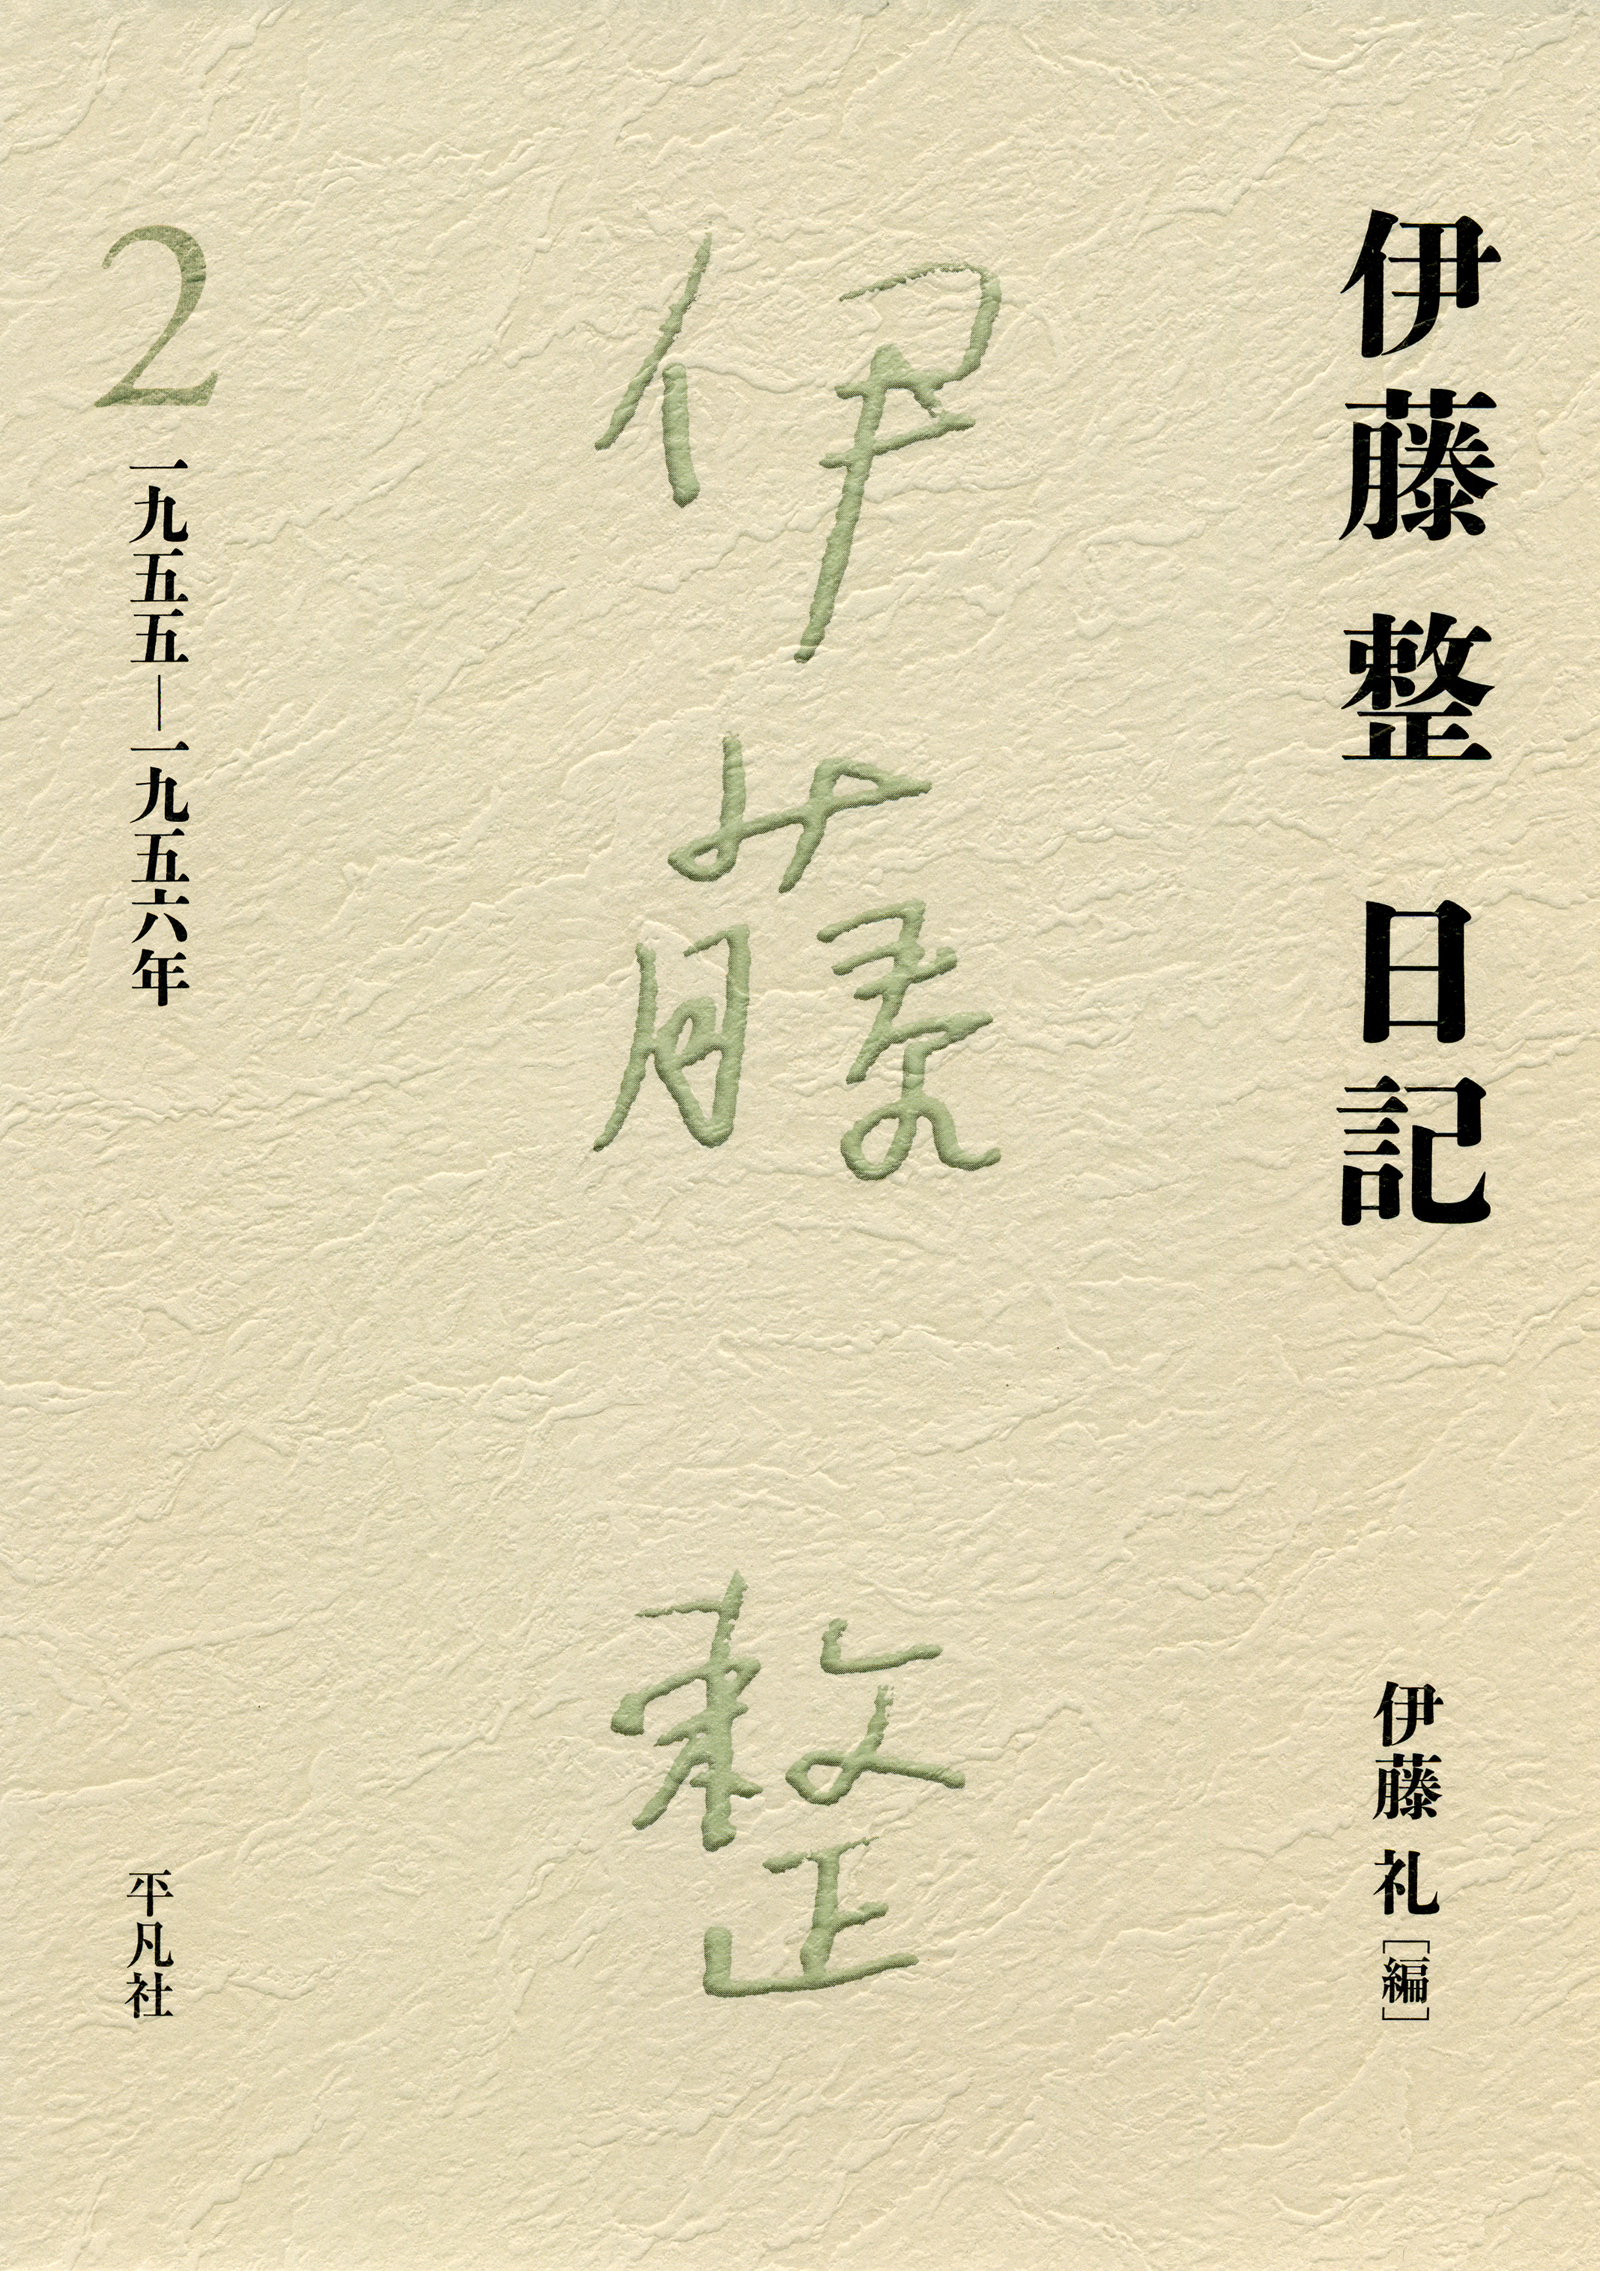 伊藤整 日記
伊藤 礼 [編]
伊藤 整
2
一九五五―一九五六年
平凡社